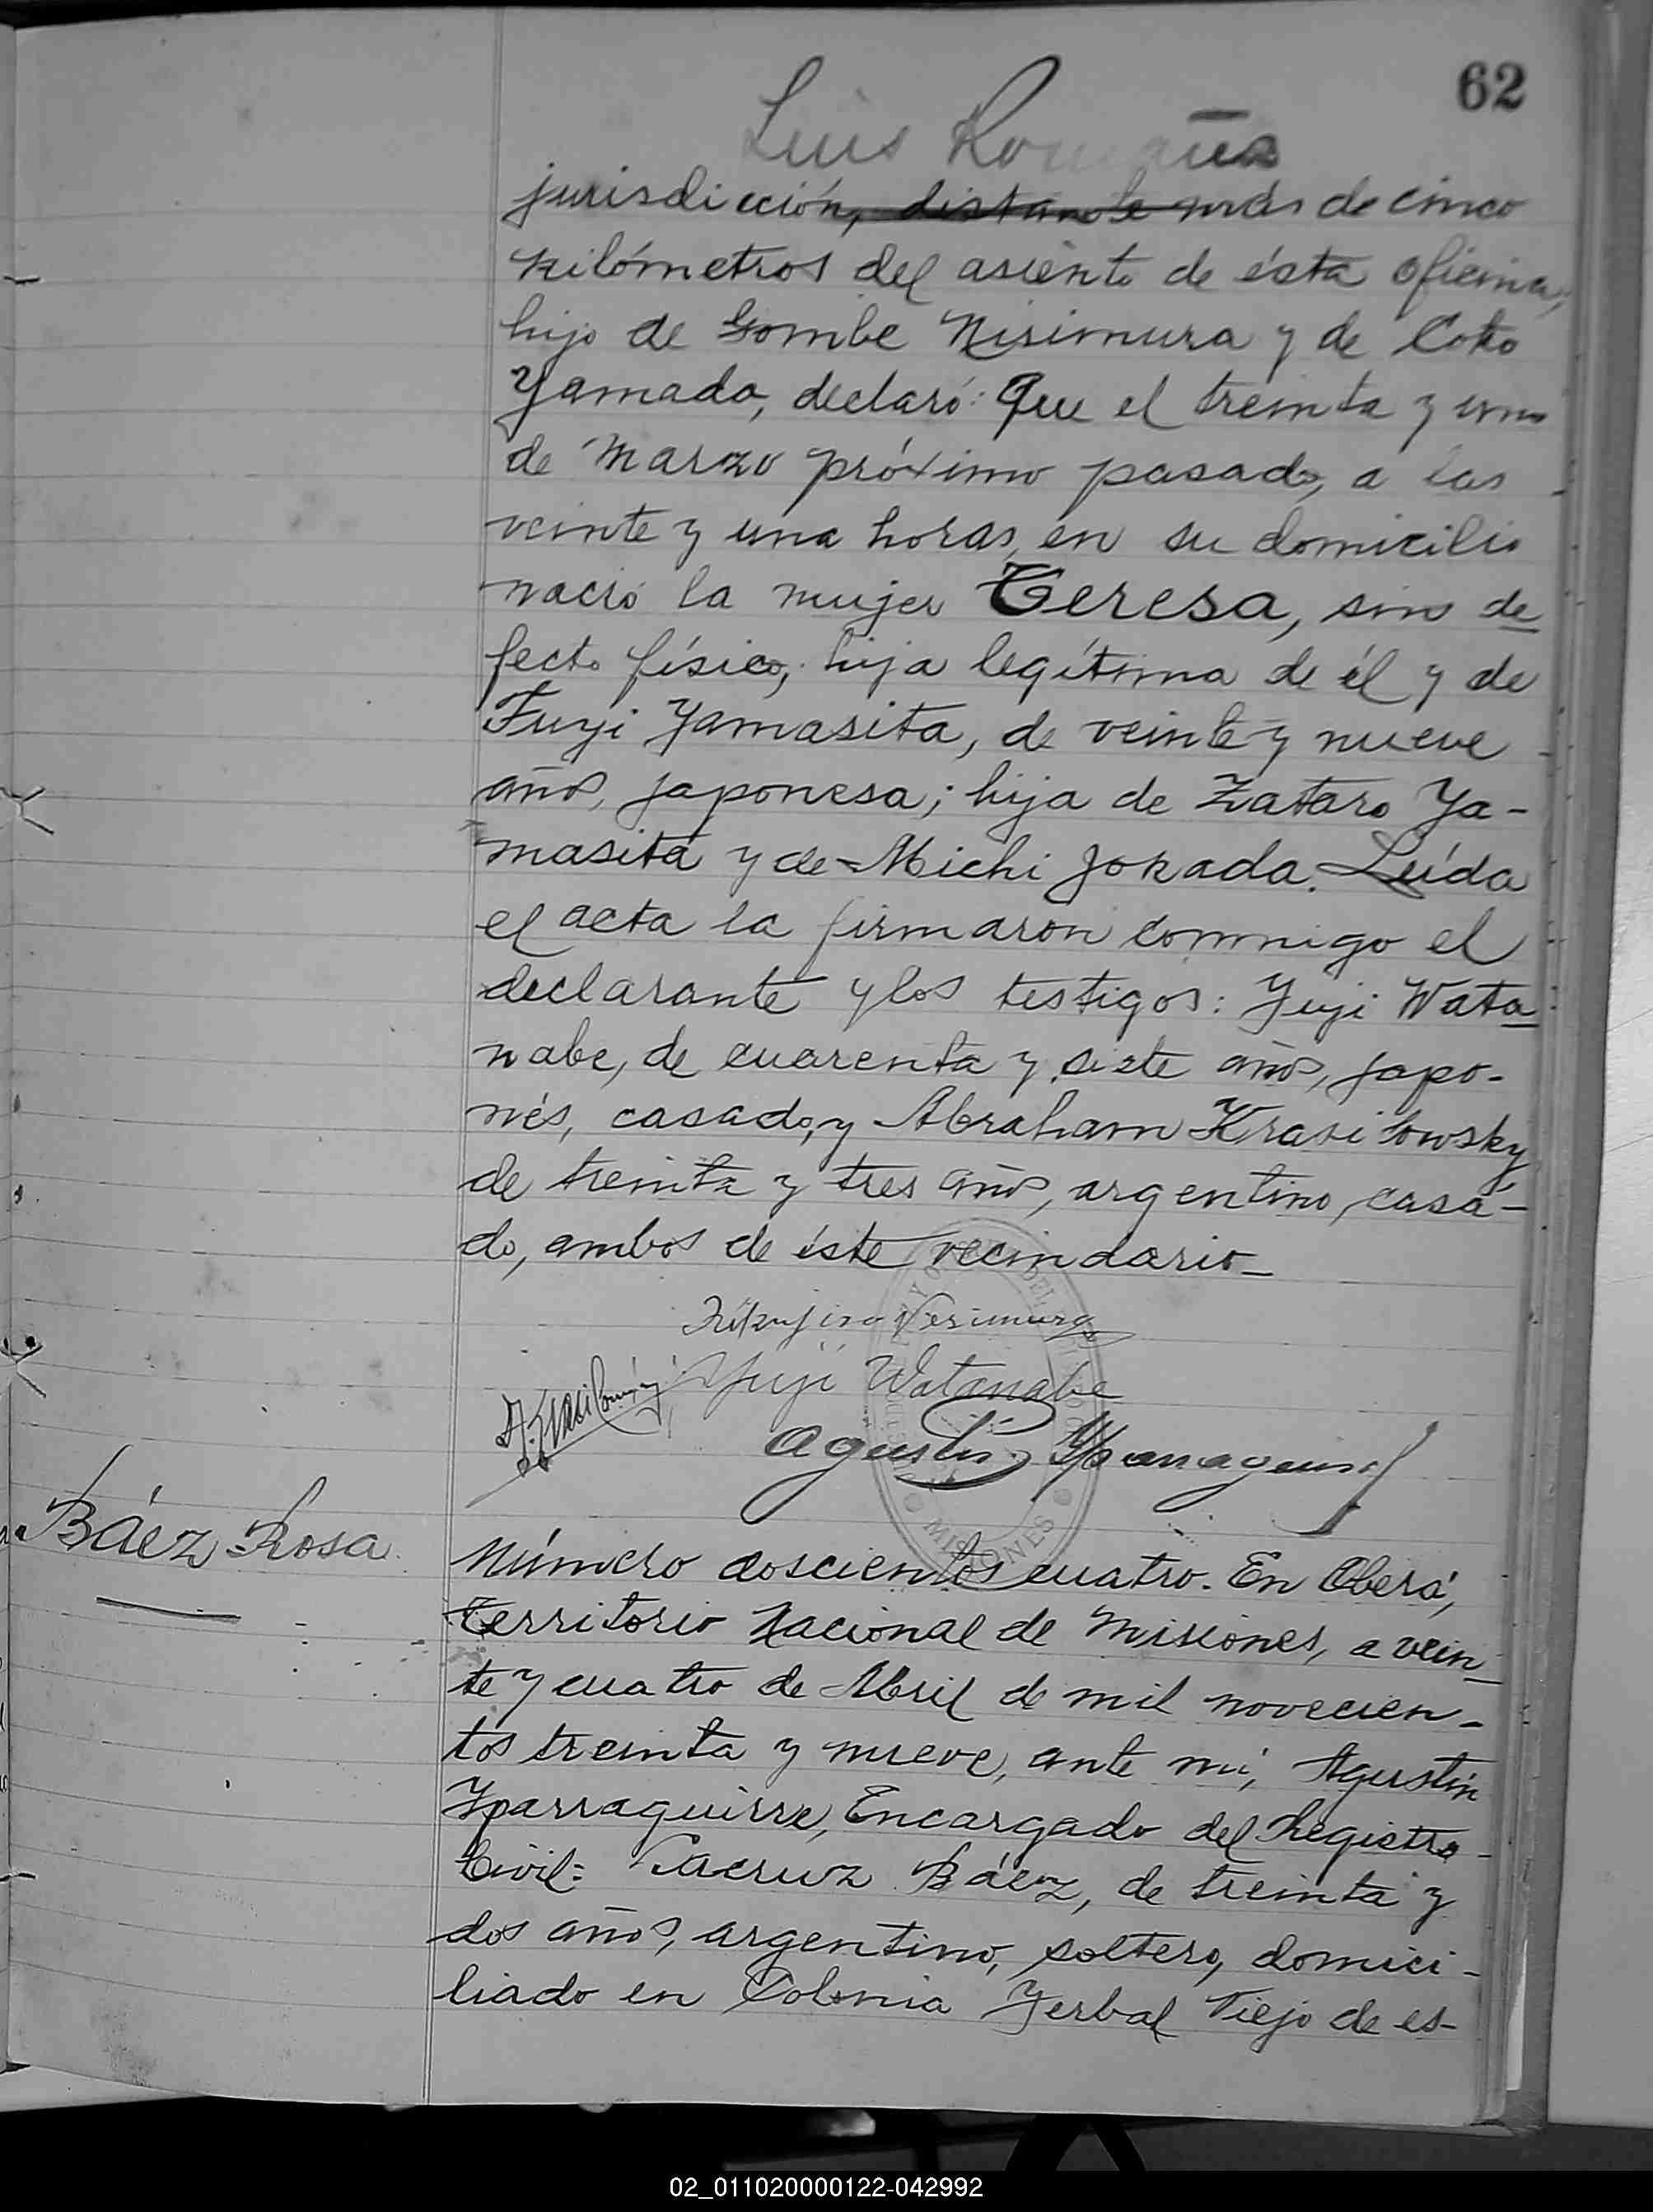 62
Luis Romaña
jurisdicción, distante más de cinco
kilómetros del asiento de ésta oficina,
hijo de Gombe Nisimura y de Coto
Yamada, declaró: Que el treinta y uno
de Marzo próximo pasado, a las
veinte y una horas, en su domicilio
nació la mujer Teresa, sin de
fecto físico, hija legítima de él y de
Fuyi Yamasita, de veinte y nueve
años, japonesa; hija de Zataro Ya-
masita y de Michi Jokada. Leída
el acta la firmaron conmigo el
declarante y los testigos: Yuji Wata
nabe, de cuarenta y siete años, japo-
nés, casado, y Abraham Krasilowsky
de treinta y tres años, argentino, casa-
do, ambos de éste vecindario_
Nisimura
Yuji Watanabe
Agustín Yparraguirre
MISIONES
Báez Rosa
Número doscientos cuatro. En Oberá,
Territorio Nacional de Misiones, a vein
te y cuatro de Abril de mil novecien-
tos treinta y nueve, ante mi, Agustín
Yparraguirre, Encargado del Registro
Civil: Lacruz Báez, de treinta y
dos años, argentino, soltero, domici-
liado en Colonia Yerbal Viejo de es-
02_011020000122-042992